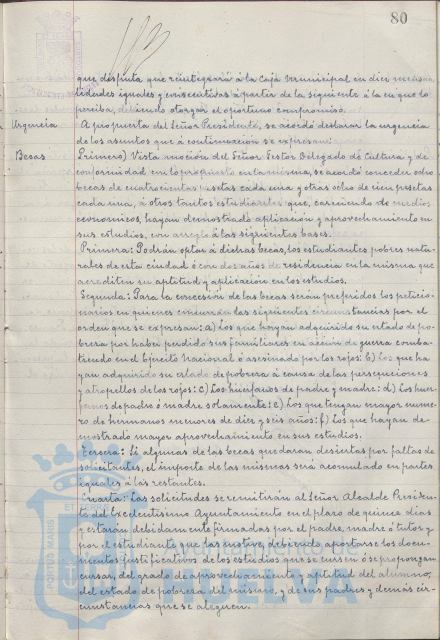 80
que disfruta que reintegrará á la Caja municipal en diez mensua-
lidades iguales y consecutivas á partir de la siguiente á la en que lo
perciba, debiendo otorgar el oportuno compromiso.
Urgencia
A propuesta del Señor Presidente, se acordó declarar la urgencia
de los asuntos que á continuación se expresan:
Becas
Primero) Vista moción del Señor Gestor Delegado de Cultura y de
conformidad con lo propuesto en la misma, se acordó conceder ocho
becas de cuatrocientas pesetas cada una y otras ocho de cien pesetas
cada una, á otros tantos estudiantes que, careciendo de medios
económicos, hayan demostrado aplicación y aprovechamiento en
sus estudios, con arreglo á las siguientes bases.
Primera: Podrán optar á dichas becas, los estudiantes pobres natu-
rales de esta ciudad ó con dos años de residencia en la misma que
acrediten su aptitud y aplicación en los estudios.
Segunda: Para la concesión de las becas serán preferidos los peticio-
narios en quienes concurran las siguientes circunstancias por el
orden que se expresan: a) Los que hayan adquirido su estado de po-
breza por haber perdido sus familiares en acción de guerra comba-
tiendo en el Ejército Nacional ó asesinado por los rojos: b) Los que ha
yan adquirido su estado de pobreza á causa de las persecuciones
y atropellos de los rojos: c) Los huérfanos de padre y madre: d) Los huér-
fanos de padre ó madre solamente: e) Los que tengan mayor núme-
ro de hermanos menores de diez y seis años: f) Los que hayan de-
mostrado mayor aprovechamiento en sus estudios.
Tercera: Si algunas de las becas quedaran desiertas por faltas de
solicitantes, el importe de las mismas será acumulado en partes
iguales á las restantes.
Cuarta: Las solicitudes se remitirán al Señor Alcalde Presiden-
te del Excelentísimo Ayuntamiento en el plazo de quince días
y estarán debidamente firmadas por el padre, madre ó tutor y
por el estudiante que las motive, debiendo aportarse los docu-
mentos justificativos de los estudios que se cursen ó se propongan
cursar, del grado de aprovechamiento y aptitud del alumno,
del estado de pobreza del mismo, y de sus padres y demás cir-
cunstancias que se aleguen.
Ayuntamiento de
HUELVA
PORTUS MARIS